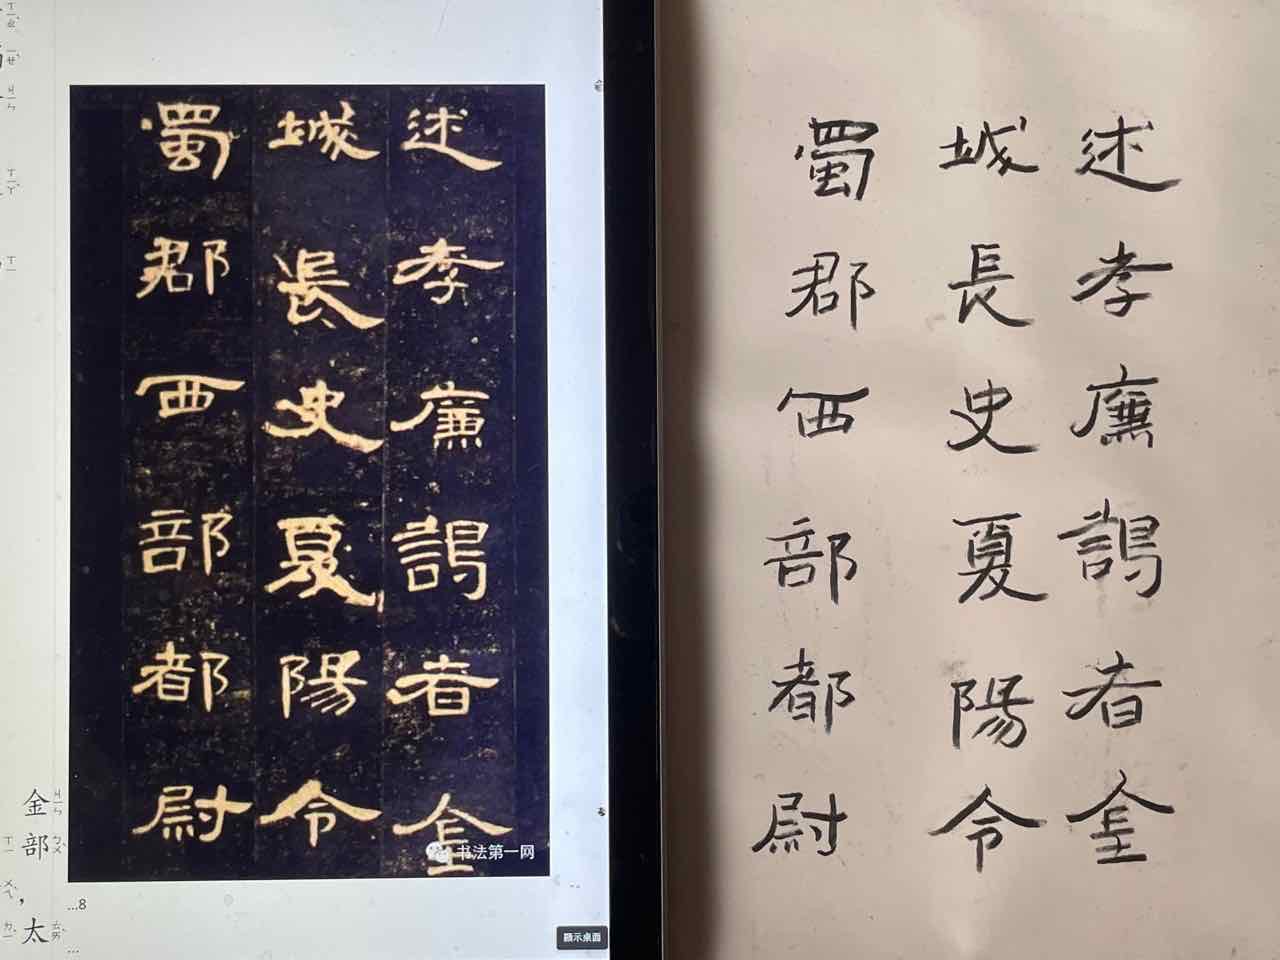 述孝廉謁者金
城長史夏陽令
蜀郡西部都尉
书法第一网
金部，太
...8
顯示桌面
述孝廉謁者金
城長史夏陽令
蜀郡西部都尉